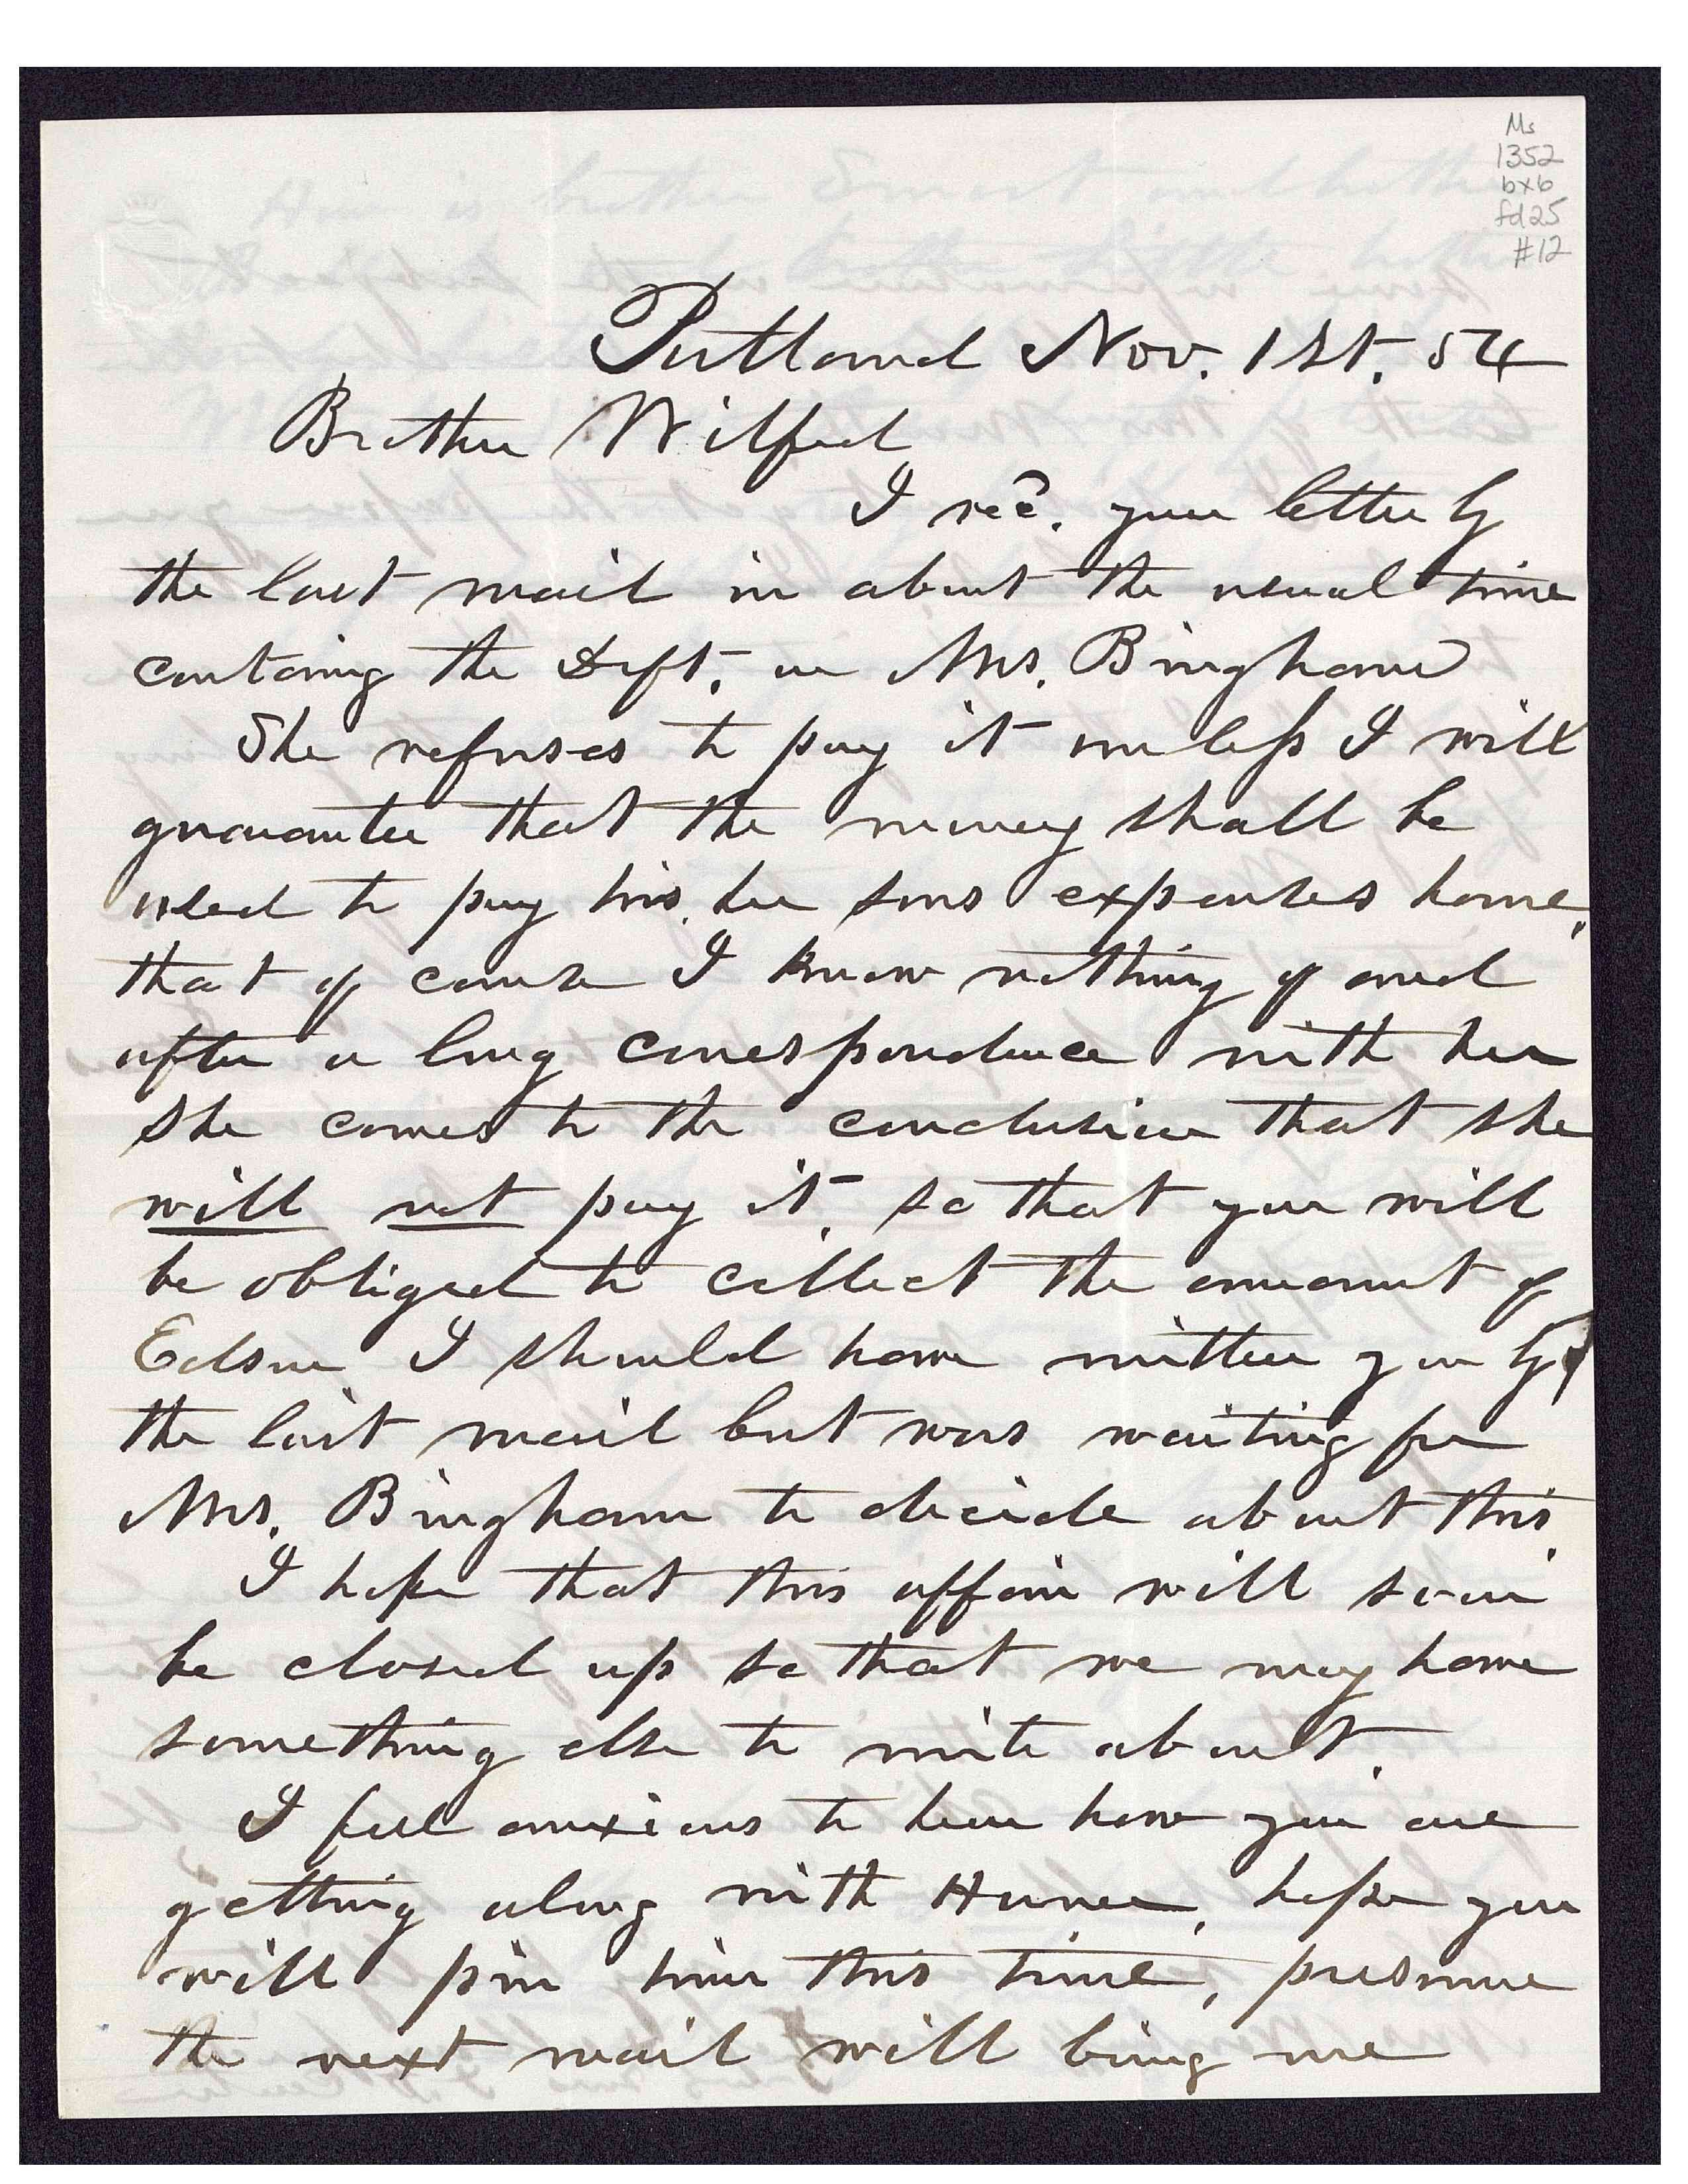 Ms
1352
bx6
fd25
#12
Portland Nov. 1st. 54
Brother Wilfred
I rec. your letter by
the last mail in about the usual time
containg the Dft. on Mrs. Bingham
She refuses to pay it unless I will
guarantee that the money shall be
used to pay his her sons expenses home,
that of course I know nothing of and
after a long correspondence with her
she comes to the conclusion that she
will not pay it, so that you will
be obliged to collect the amount of
Edson I should have written you by
the last mail but was waiting for
Mrs. Bingham to decide about this.
I hope that this affair will soon
be closed up so that we may have
something else to write about.
I feel anxious to hear how you are
getting along with, hope you
will pin him this time, presume
the next mail will bring me